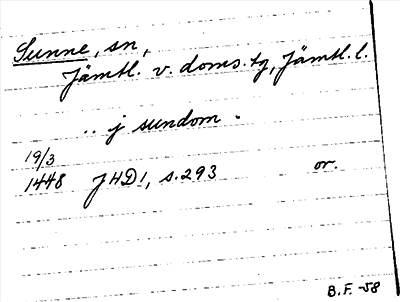 Sunne, sn,
Jämtl. v. doms.tg, Jämtl. l.
.. j sundom .
19/3
1448 JHD1, s.293 or.
B.F. -58